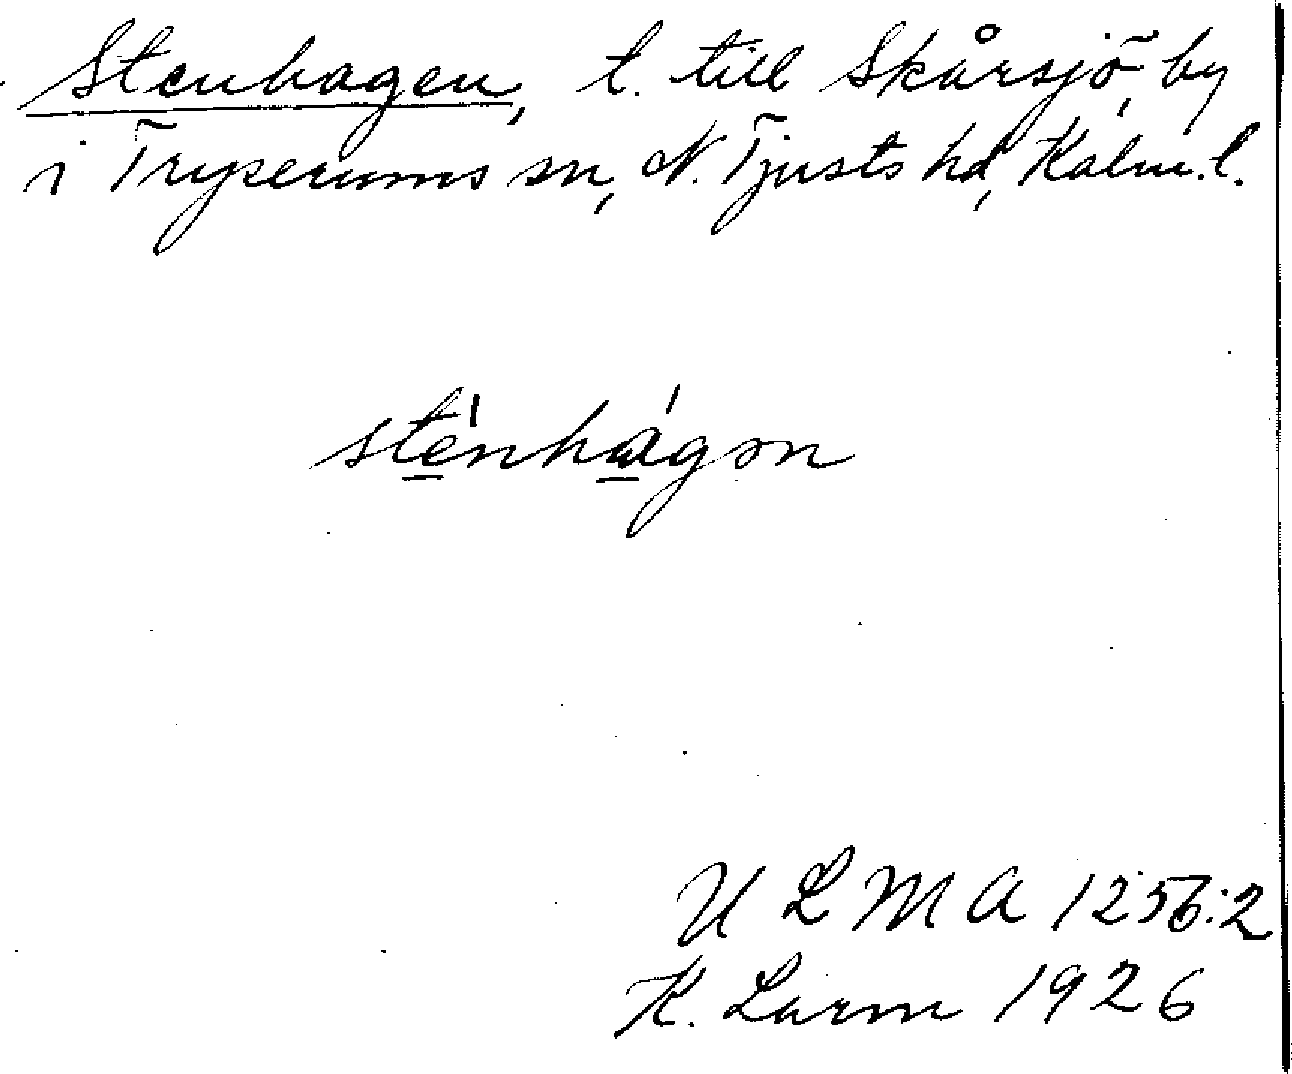 Stenhagen, t. till Skårsjö, by
i Tryserums sn, N. Tjusts hd, Kalm. l.
sténhágən
U L M A 1256:2
K. Larm 1926